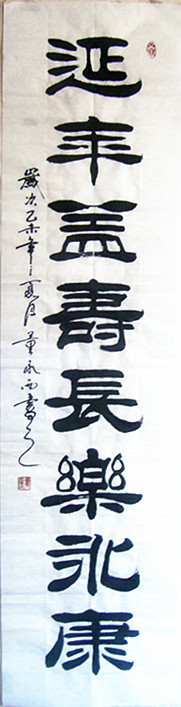 延年益壽長樂永康
歲次乙未年之夏月董永西書之